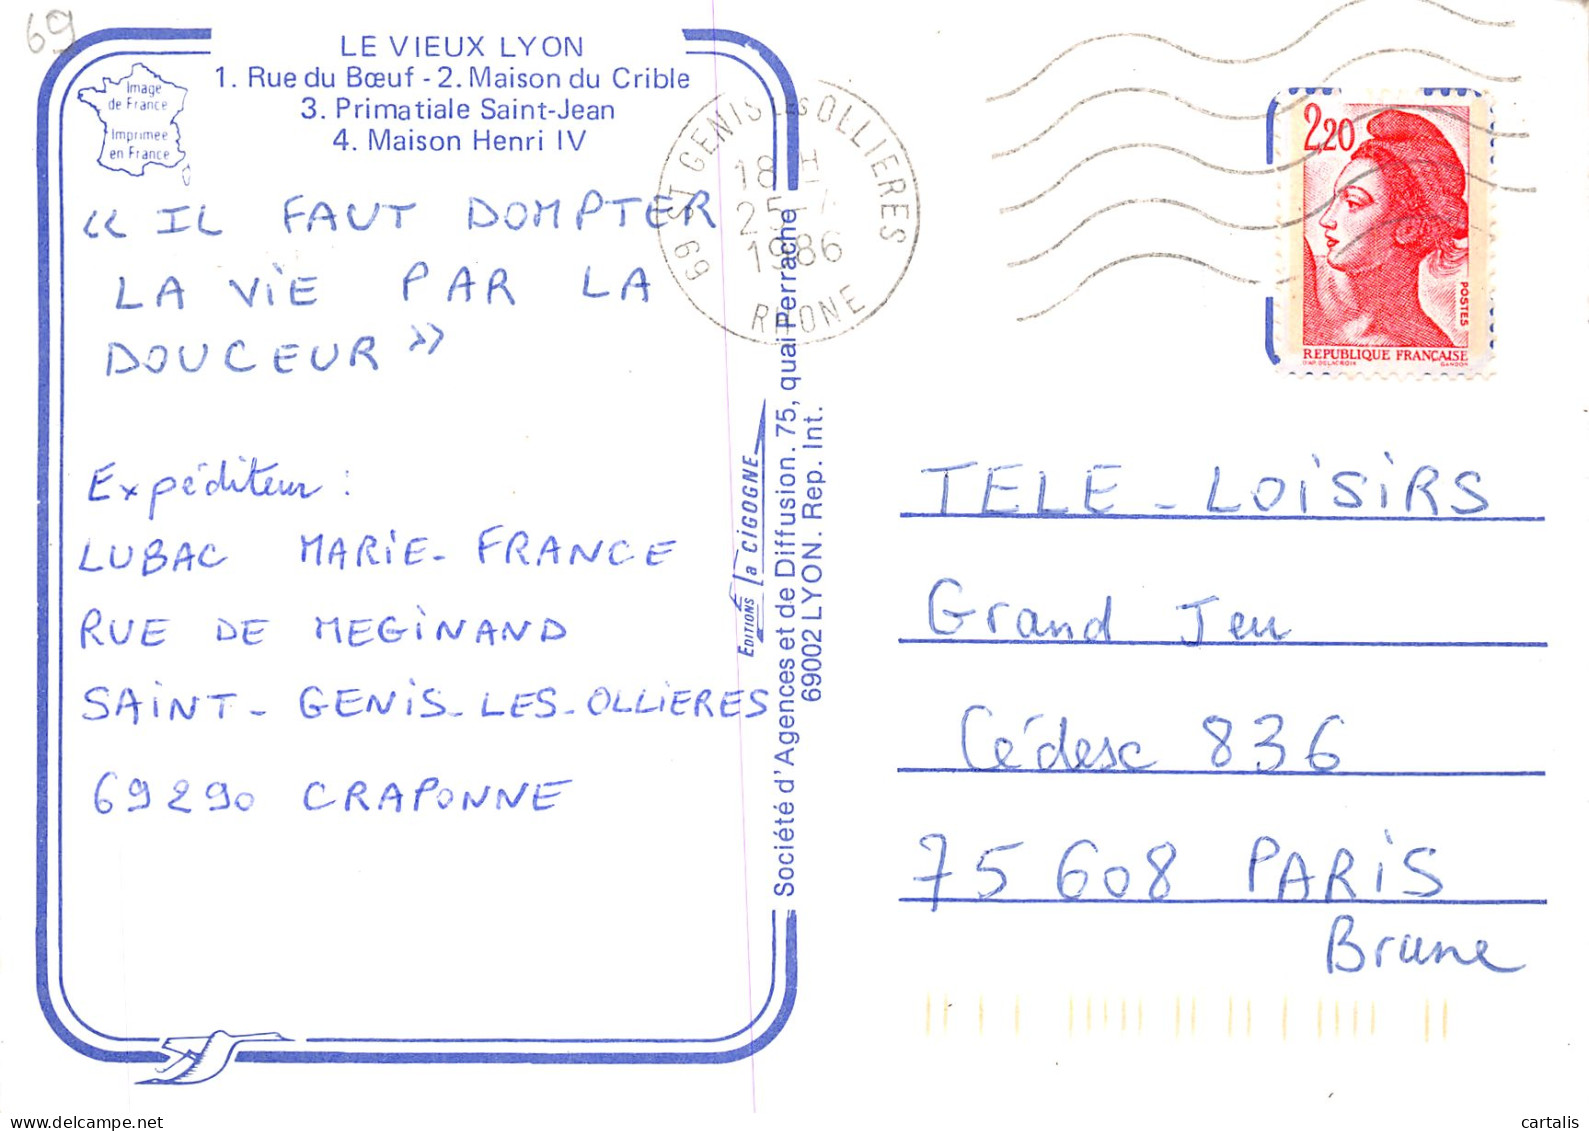 69
LE VIEUX LYON
1. Rue du Bœuf - 2. Maison du Crible
3. Primatiale Saint-Jean
4. Maison Henri IV
Image
de France
Imprimée
en France
« IL FAUT DOMPTER
LA VIE PAR LA
DOUCEUR »
Expéditeur :
LUBAC MARIE-FRANCE
RUE DE MEGINAND
SAINT-GENIS-LES-OLLIERES
69290 CRAPONNE
EDITIONS la CIGOGNE
Société d'Agences et de Diffusion. 75, quai Perrache
69002 LYON. Rep. Int.
69 ST GENIS LES OLLIERES
18 H
25-
1986
RHONE
2,20
POSTES
REPUBLIQUE FRANÇAISE
D'AP. DELACROIX GANDON
TELE-LOISIRS
Grand Jeu
Cédesc 836
75608 PARIS
Brune
cartalis
www.delcampe.net